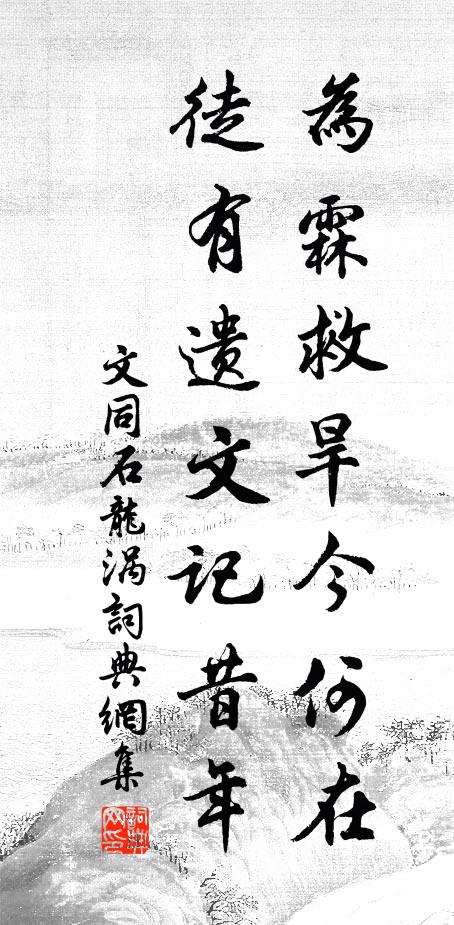 為霖救旱今何在
徒有遗文记昔年
文同石龍涡詞典網集